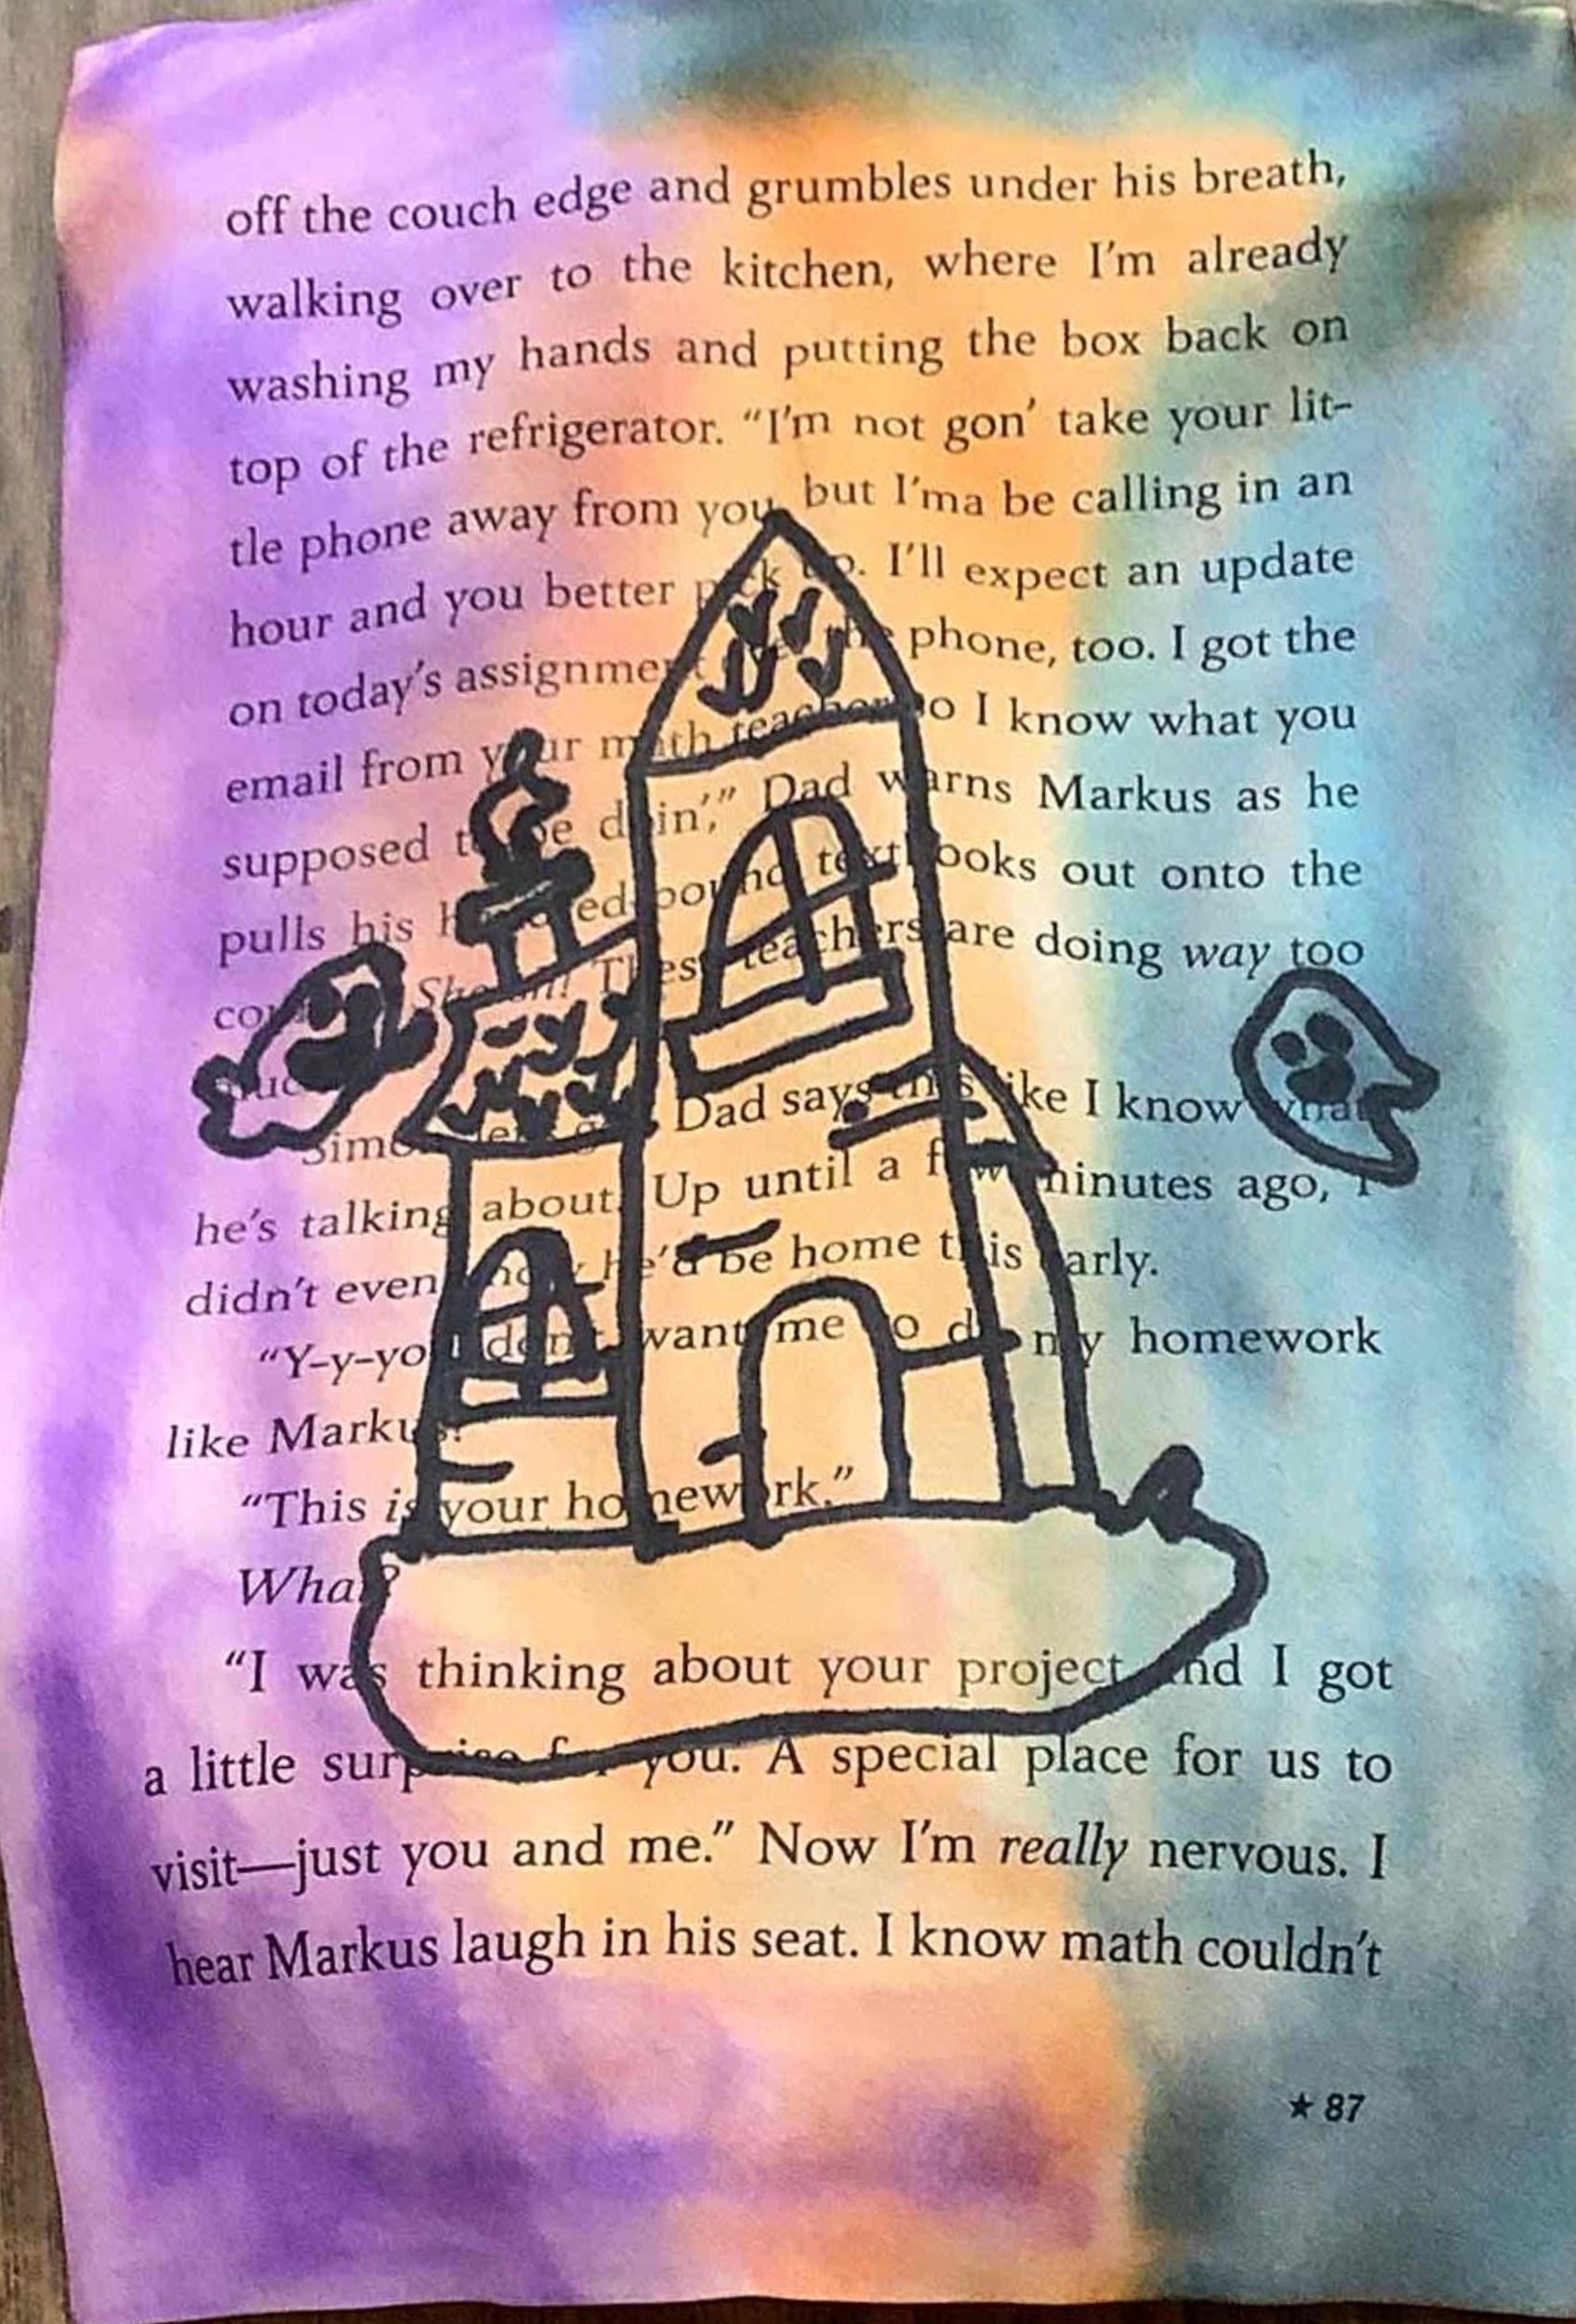 off the couch edge and grumbles under his breath,
walking over to the kitchen, where I'm already
washing my hands and putting the box back on
top of the refrigerator. “I'm not gon’ take your lit-
tle phone away from you, but I'ma be calling in an
hour and you better pick up. I'll expect an update
on today's assignment the phone, too. I got the
email from your math teacher so I know what you
supposed to be doin’,” Dad warns Markus as he
pulls his textbooks out onto the
These teachers are doing way too
Dad says this like I know what
he's talking about. Up until a few minutes ago, I
didn't even know he'd be home this early.
“Y-y-you don't want me to do my homework
like Markus?
“This is your homework.”
What?
“I was thinking about your project and I got
a little surprise for you. A special place for us to
visit—just you and me.” Now I'm really nervous. I
hear Markus laugh in his seat. I know math couldn't
★ 87